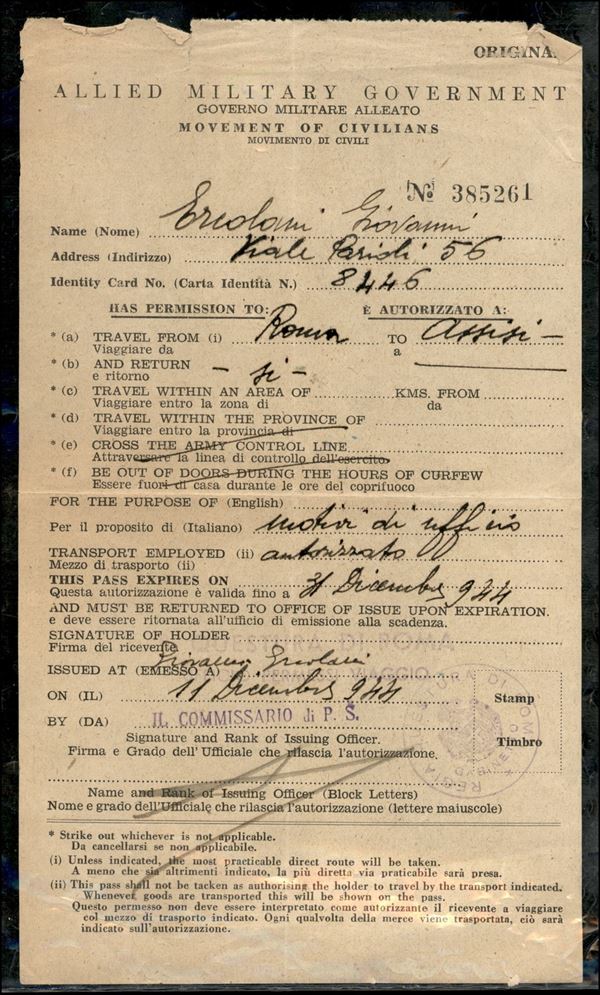 ORIGINA
ALLIED MILITARY GOVERNMENT
GOVERNO MILITARE ALLEATO
MOVEMENT OF CIVILIANS
MOVIMENTO DI CIVILI
No 385261
Name (Nome) Ercolani Giovanni
Address (Indirizzo) Viale Parioli 56
Identity Card No. (Carta Identità N.) 8446
HAS PERMISSION TO: È AUTORIZZATO A:
* (a) TRAVEL FROM (i) Roma TO Assisi —
Viaggiare da a
* (b) AND RETURN – si –
e ritorno
* (c) TRAVEL WITHIN AN AREA OF KMS. FROM
Viaggiare entro la zona di da
* (d) TRAVEL WITHIN THE PROVINCE OF
Viaggiare entro la provincia di
* (e) CROSS THE ARMY CONTROL LINE
Attraversare la linea di controllo dell'esercito.
* (f) BE OUT OF DOORS DURING THE HOURS OF CURFEW
Essere fuori di casa durante le ore del coprifuoco
FOR THE PURPOSE OF (English)
Per il proposito di (Italiano) motivi di ufficio
TRANSPORT EMPLOYED (ii) autorizzato
Mezzo di trasporto (ii)
THIS PASS EXPIRES ON
Questa autorizzazione è valida fino a 31 Dicembre 944
AND MUST BE RETURNED TO OFFICE OF ISSUE UPON EXPIRATION.
e deve essere ritornata all'ufficio di emissione alla scadenza.
SIGNATURE OF HOLDER
QUESTURA DI ROMA
Firma del ricevente Giovanni Ercolani
ISSUED AT (EMESSO A)
ON (IL) 11 Dicembre 944
BY (DA) IL COMMISSARIO di P. S.
Stamp
Timbro
Signature and Rank of Issuing Officer.
Firma e Grado dell' Ufficiale che rilascia l'autorizzazione.
Name and Rank of Issuing Officer (Block Letters)
Nome e grado dell'Ufficiale che rilascia l'autorizzazione (lettere maiuscole)
* Strike out whichever is not applicable.
Da cancellarsi se non applicabile.
(i) Unless indicated, the most practicable direct route will be taken.
A meno che sia altrimenti indicato, la più diretta via praticabile sarà presa.
(ii) This pass shall not be tacken as authorising the holder to travel by the transport indicated.
Whenever goods are transported this will be shown on the pass.
Questo permesso non deve essere interpretato come autorizzante il ricevente a viaggiare
col mezzo di trasporto indicato. Ogni qualvolta della merce viene trasportata, ciò sarà
indicato sull'autorizzazione.